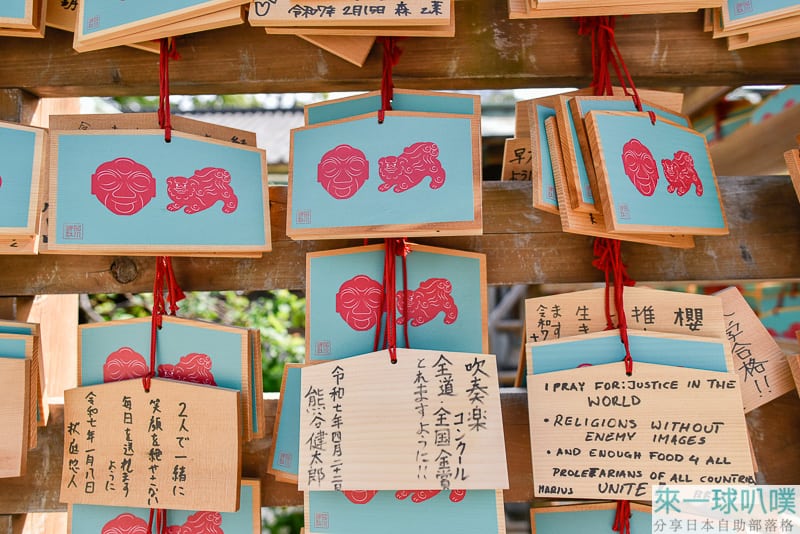 令和7年 2月15日 森
早
生
推
櫻
令和7
学合格!!
2人で一緒に
笑顔を絶やさない
毎日を送れます
ように
令和七年一月八日
吹奏楽
コンクール
全道 全国 金賞
とれますように!!
令和七年四月二十二日
熊谷健太郎
I PRAY FOR: JUSTICE IN THE
WORLD
• RELIGIONS WITHOUT
ENEMY IMAGES
• AND ENOUGH FOOD 4 ALL
PROLETARIANS OF ALL COUNTRIES
MARIUS UNITE
來一球叭噗
分享日本自助部落格